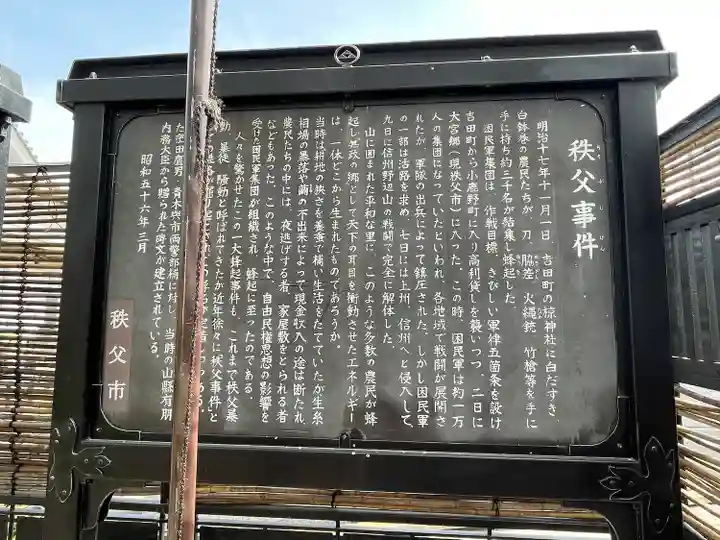 秩父事件
明治十七年十一月一日、吉田町の椋神社に白だすき、
白鉢巻の農民たちが、刀、脇差、火縄銃、竹槍等を手に
手に持ち約三千名が結集し蜂起した。
困民軍集団は、作戦目標、きびしい軍律五箇条を設け
吉田町から小鹿野町に入り高利貸しを襲いつつ、二日に
大宮郷(現秩父市)に入った。この時、困民軍は約一万
人の集団になっていたといわれ、各地域で戦闘が展開さ
れたが、軍隊の出兵によって鎮圧された。しかし困民軍
の一部は活路を求め、七日には上州、信州へと侵入して、
九日に信州野辺山の戦闘で完全に解体した。
山に囲まれた平和な里に、このような多数の農民が蜂
起し無政の郷として天下の耳目を衝動させたエネルギー
は、一体どこから生まれたものであろうか。
当時は耕地の狭さを養蚕で補い生活をたてていたが生糸
相場の暴落や繭の不出来によって現金収入の途は断たれ、
農民たちの中には、夜逃げする者、家屋敷をとられる者
などもあった。このような中で、自由民権思想の影響を
受けた困民軍集団が組織され、蜂起に至ったのである。
人々を驚かせたこの一大蜂起事件も、これまで秩父暴
動、暴徒、騒動と呼ばれてきたが近年徐々に「秩父事件」と
た窪田鷹男、青木與市両警部補に対し、当時の山縣有朋
内務大臣から贈られた碑文が建立されている。
昭和五十六年三月
秩父市